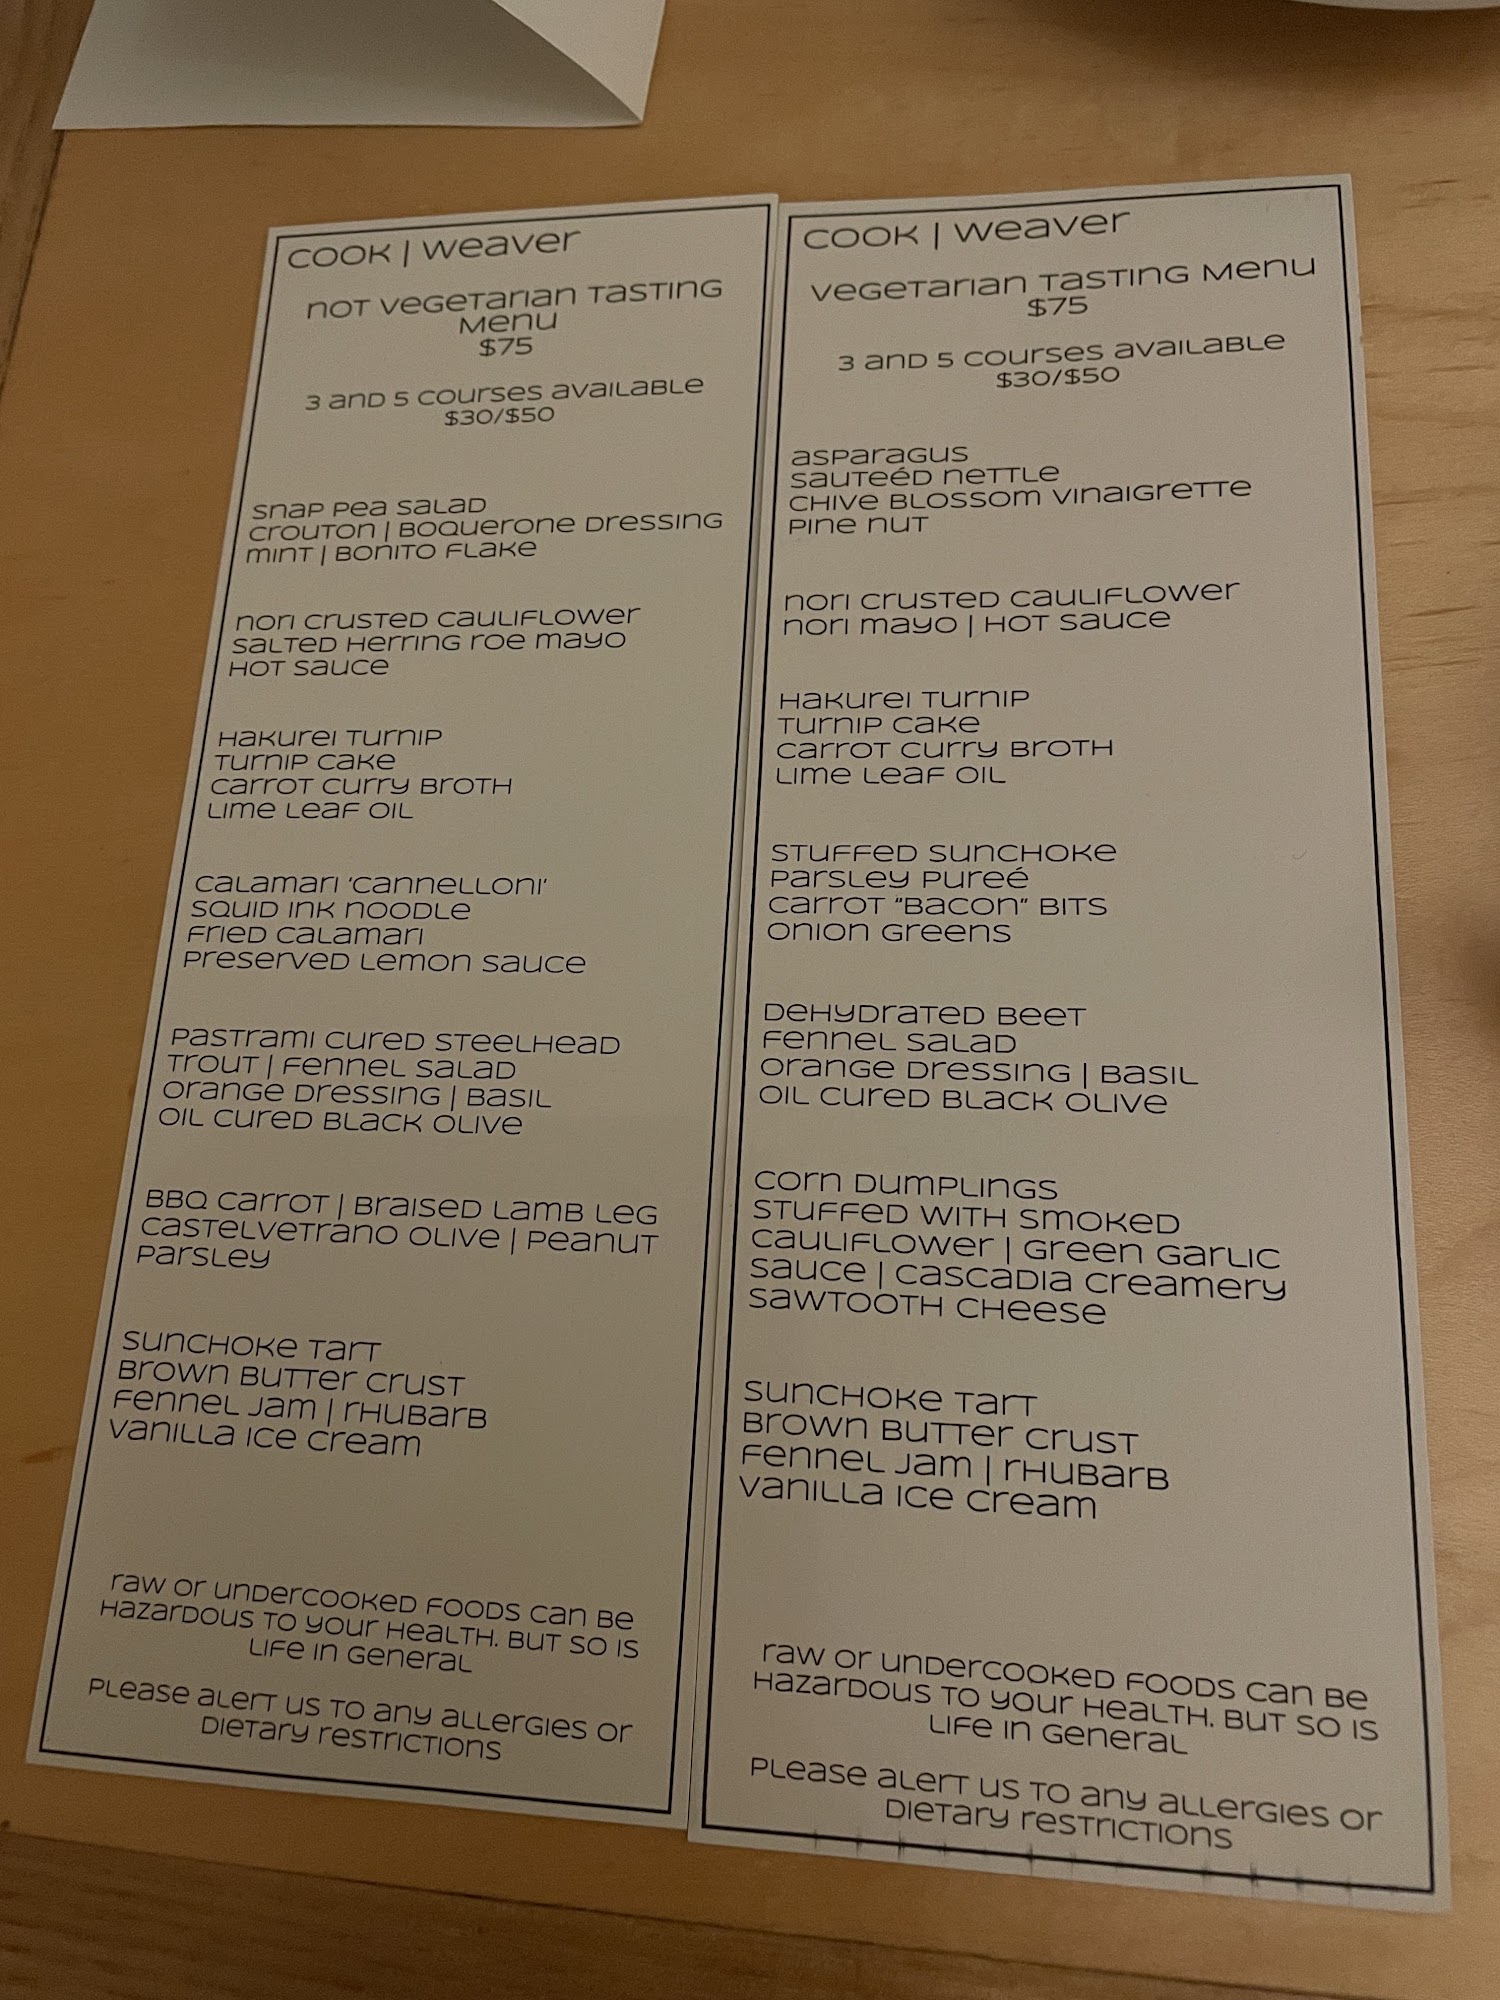 COOK | Weaver
NOT VEGETARIAN TASTING
MENU
$75
3 AND 5 COURSES AVAILABLE
$30/$50
SNAP PEA SALAD
CROUTON | BOQUERONE DRESSING
MINT | BONITO FLAKE
NORI CRUSTED CAULIFLOWER
SALTED HERRING ROE MAYO
HOT SAUCE
HAKUREI TURNIP
TURNIP CAKE
CARROT CURRY BROTH
LIME LEAF OIL
CALAMARI 'CANNELLONI'
SQUID INK NOODLE
FRIED CALAMARI
PRESERVED LEMON SAUCE
PASTRAMI CURED STEELHEAD
TROUT | FENNEL SALAD
ORANGE DRESSING | BASIL
OIL CURED BLACK OLIVE
BBQ CARROT | BRAISED LAMB LEG
CASTELVETRANO OLIVE | PEANUT
PARSLEY
SUNCHOKE TART
BROWN BUTTER CRUST
FENNEL JAM | RHUBARB
VANILLA ICE CREAM
RAW OR UNDERCOOKED FOODS CAN BE
HAZARDOUS TO YOUR HEALTH. BUT SO IS
LIFE IN GENERAL
PLEASE ALERT US TO ANY ALLERGIES OR
DIETARY RESTRICTIONS
COOK | Weaver
VEGETARIAN TASTING MENU
$75
3 AND 5 COURSES AVAILABLE
$30/$50
ASPARAGUS
SAUTEÉD NETTLE
CHIVE BLOSSOM VINAIGRETTE
PINE NUT
NORI CRUSTED CAULIFLOWER
NORI MAYO | HOT SAUCE
HAKUREI TURNIP
TURNIP CAKE
CARROT CURRY BROTH
LIME LEAF OIL
STUFFED SUNCHOKE
PARSLEY PUREÉ
CARROT "BACON" BITS
ONION GREENS
DEHYDRATED BEET
FENNEL SALAD
ORANGE DRESSING | BASIL
OIL CURED BLACK OLIVE
CORN DUMPLINGS
STUFFED WITH SMOKED
CAULIFLOWER | GREEN GARLIC
SAUCE | CASCADIA CREAMERY
SAWTOOTH CHEESE
SUNCHOKE TART
BROWN BUTTER CRUST
FENNEL JAM | RHUBARB
VANILLA ICE CREAM
RAW OR UNDERCOOKED FOODS CAN BE
HAZARDOUS TO YOUR HEALTH. BUT SO IS
LIFE IN GENERAL
PLEASE ALERT US TO ANY ALLERGIES OR
DIETARY RESTRICTIONS